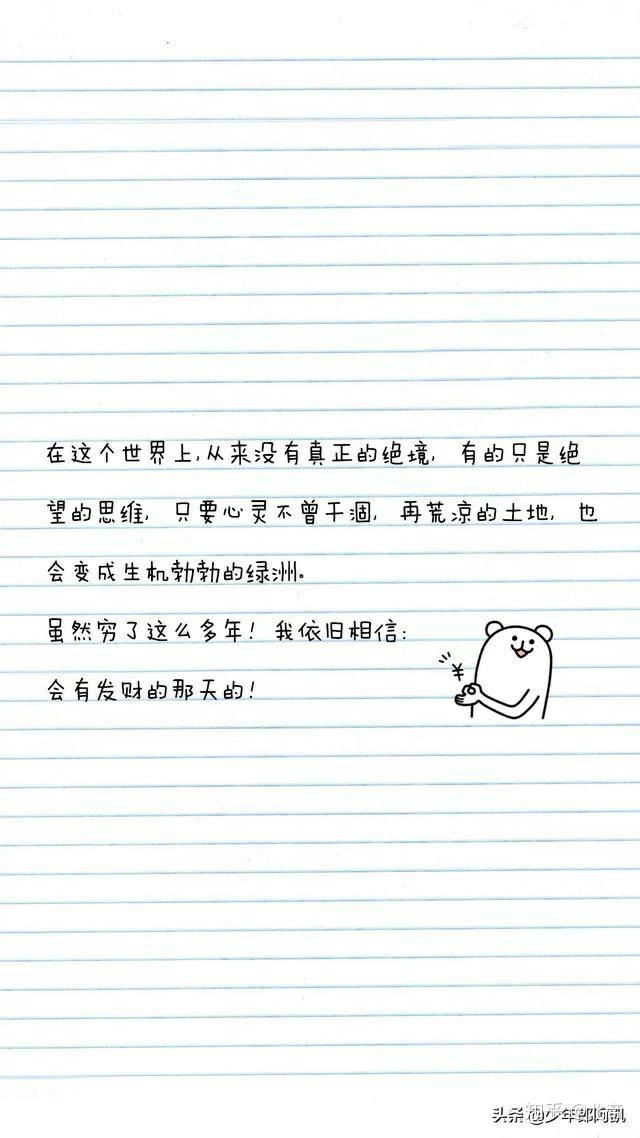 在这个世界上,从来没有真正的绝境, 有的只是绝
望的思维, 只要心灵不曾干涸, 再荒凉的土地, 也
会变成生机勃勃的绿洲。
虽然穷了这么多年! 我依旧相信:
会有发财的那天的!
¥
头条 @少年郎阿凯